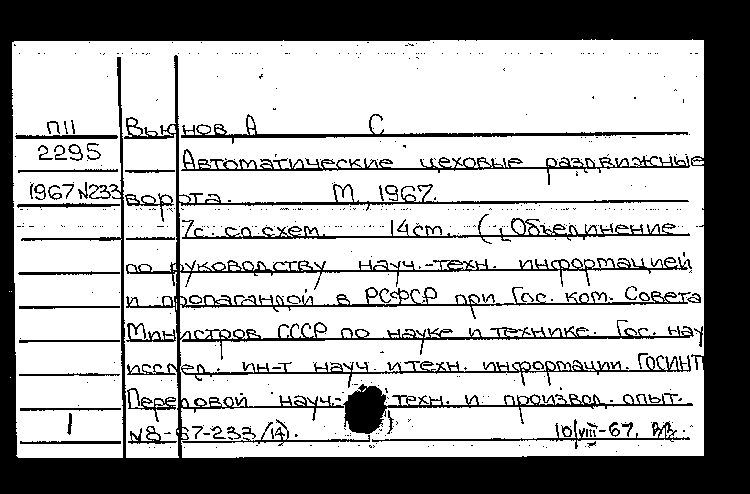 П11 Вьюнов, А С
2295 Автоматические цеховые раздвижные
1967 №233 ворота. М., 1967.
7с. со схем. 14см. (Объединение
по руководству науч.-техн. информацией
и пропагандой в РСФСР при Гос. ком. Совета
Министров СССР по науке и технике. Гос. нау
исслед. ин-т науч. и техн. информации. ГОСИНТИ
Передовой науч.- техн. и производ. опыт.
1 №8-67-233/14). 10/VIII-67.